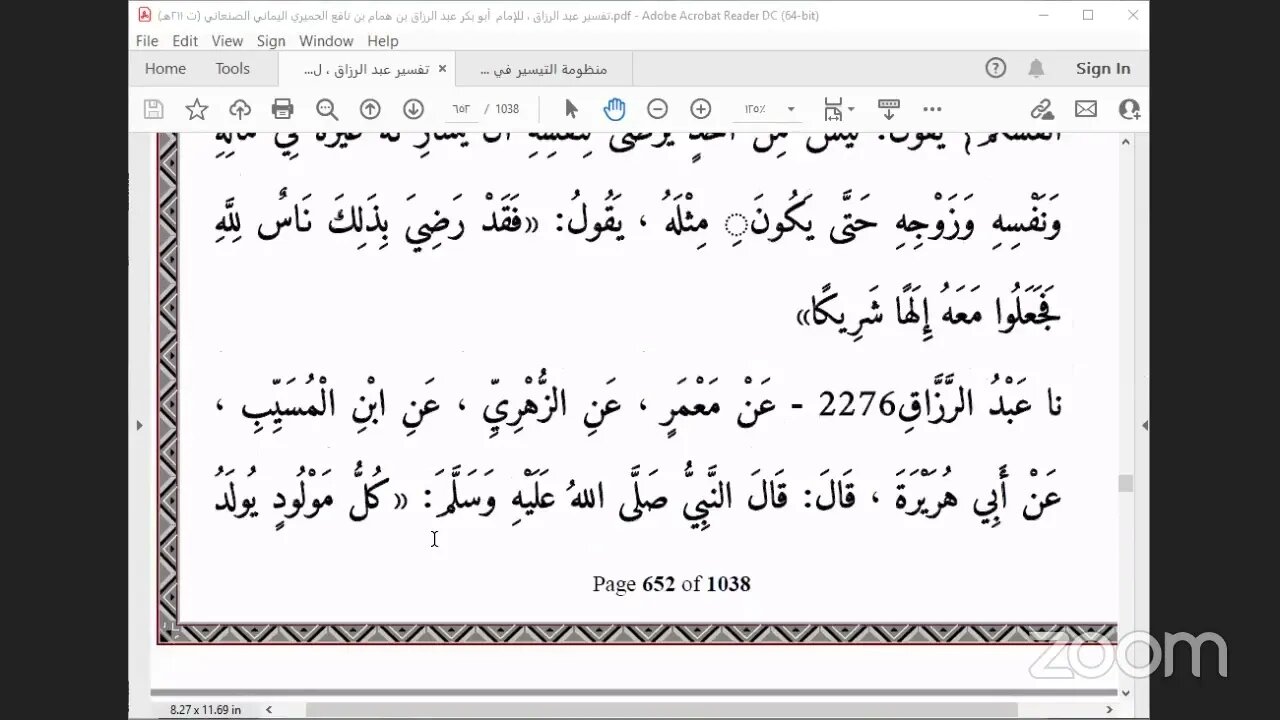 تفسير عبد الرزاق ، للإمام أبو بكر عبد الرزاق بن همام بن نافع الحميري اليماني الصنعاني (ت ٢١١هـ).pdf - Adobe Acrobat Reader DC (64-bit)
File Edit View Sign Window Help
Home Tools تفسير عبد الرزاق ، ل... منظومة التيسير في ... Sign In
٦٥٣ / 1038 ١٢٥٪
وَنَفْسِهِ وَزَوْجِهِ حَتَّى يَكُونَِ مِثْلَهُ ، يَقُولُ: «فَقَدْ رَضِيَ بِذَلِكَ نَاسٌ لِلَّهِ
فَجَعَلُوا مَعَهُ إِلَهًا شَرِيكًا»
نا عَبْدُ الرَّزَّاقِ2276 - عَنْ مَعْمَرٍ ، عَنِ الزُّهْرِيِّ ، عَنِ ابْنِ الْمُسَيِّبِ ،
عَنْ أَبِي هُرَيْرَةَ ، قَالَ: قَالَ النَّبِيُّ صَلَّى اللهُ عَلَيْهِ وَسَلَّمَ: « كُلُّ مَوْلُودٍ يُولَدُ
Page 652 of 1038
zoom
8.27 x 11.69 in